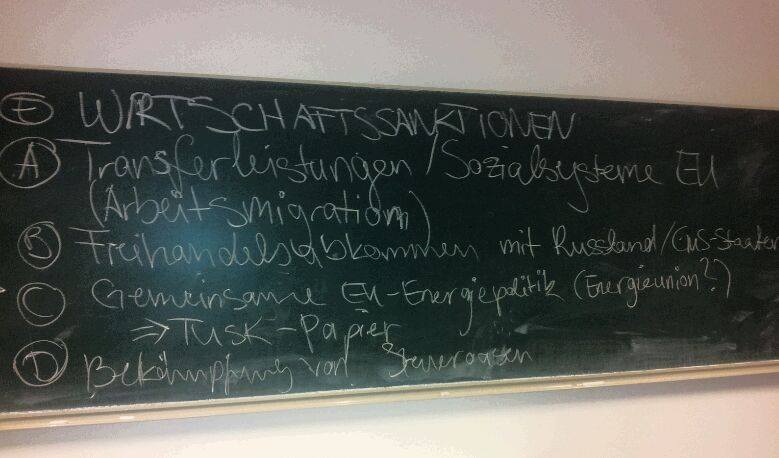 Ⓔ WIRTSCHAFTSSANKTIONEN
Ⓐ Transferleistungen/Sozialsysteme EU
(Arbeitsmigration)
Ⓑ Freihandelsabkommen mit Russland/GUS-Staaten
Ⓒ Gemeinsame EU-Energiepolitik (Energieunion?)
⇒ TUSK-Papier
Ⓓ Bekämpfung von Steueroasen